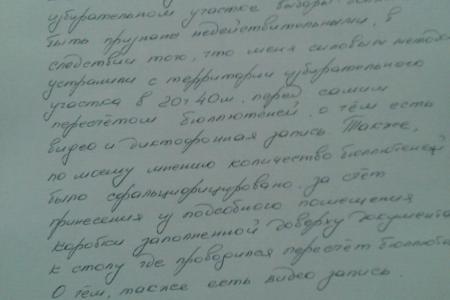 избирательном участке выборы
быть признана недействительными, в
следствии того, что меня силовым методом
устранили с территории избирательного
участка в 20ч 40м, перед самим
пересчётом бюллютеней, о чём есть
видео и диктофонная запись. Также,
по моему мнению количество бюллютеней
было сфальцифицировано, за счёт
принесения из подсобного помещения
коробки заполненной доверху документа
к столу где проводился пересчёт бюллюте
О чём, также есть видео запись.